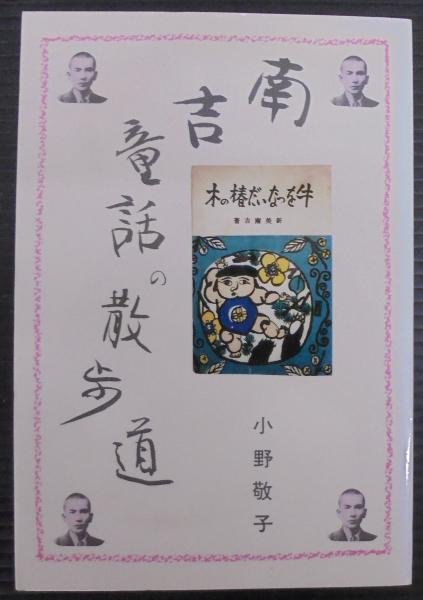 南吉
童話の散歩道
木の椿だいなつを牛
著吉南美新
小野敬子